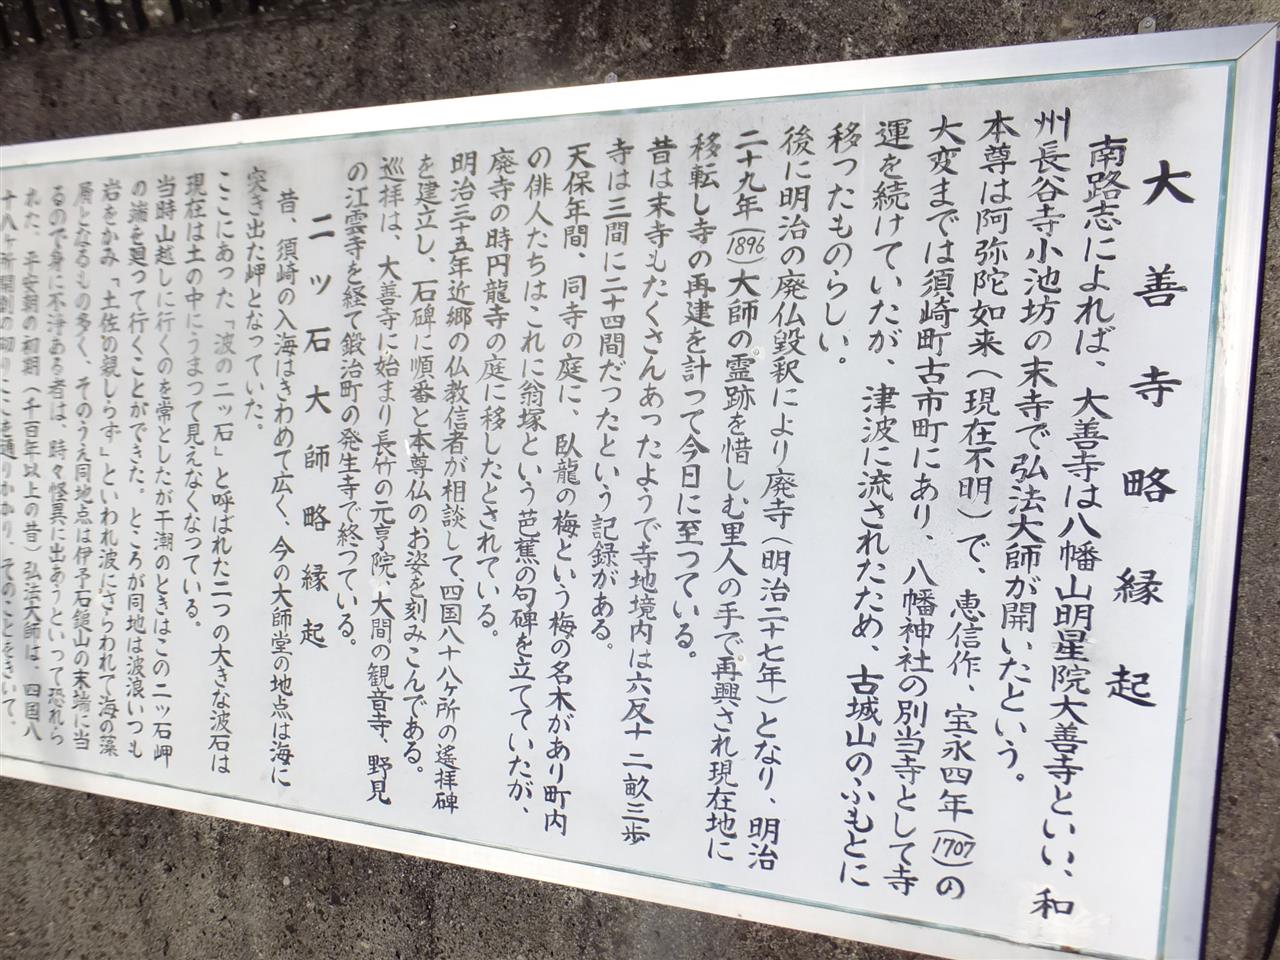 大善寺略縁起
南路志によれば、大善寺は八幡山明星院大善寺といい、和
州長谷寺小池坊の末寺で弘法大師が開いたという。
本尊は阿弥陀如来(現在不明)で、恵信作、宝永四年(1707)の
大変までは須崎町古市町にあり、八幡神社の別当寺として寺
運を続けていたが、津波に流されたため、古城山のふもとに
移つたものらしい。
後に明治の廃仏毀釈により廃寺(明治二十七年)となり、明治
二十九年(1896)大師の霊跡を惜しむ里人の手で再興され現在地に
移転し寺の再建を計って今日に至つている。
昔は末寺もたくさんあったようで寺地境内は六反十二畝三歩
寺は三間に二十四間だつたという記録がある。
天保年間、同寺の庭に、臥龍の梅という梅の名木があり町内
の俳人たちはこれに翁塚という芭蕉の句碑を立てていたが、
廃寺の時円龍寺の庭に移したとされている。
明治三十五年近郷の仏教信者が相談して、四国八十八ヶ所の遙拝碑
を建立し、石碑に順番と本尊仏のお姿を刻みこんである。
巡拝は、大善寺に始まり長竹の元亨院、大間の観音寺、野見
の江雲寺を経て鍛治町の発生寺で終つている。
二ツ石大師略縁起
昔、須崎の入海はきわめて広く、今の大師堂の地点は海に
突き出た岬となっていた。
ここにあった「波の二ッ石」と呼ばれた二つの大きな波石は
現在は土の中にうまつて見えなくなつている。
当時山越しに行くのを常としたが干潮のときはこの二ッ石岬
の端を廻つて行くことができた。ところが同地は波浪いつも
岩をかみ「土佐の親しらず」といわれ波にさらわれて海の藻
屑となるもの多く、そのうえ同地点は伊予石鎚山の末端に当
るので身に不浄ある者は、時々怪異に出あうといって恐れら
れた、平安朝の初期(千百年以上の昔)弘法大師は、四国八
十八ヶ所開創の